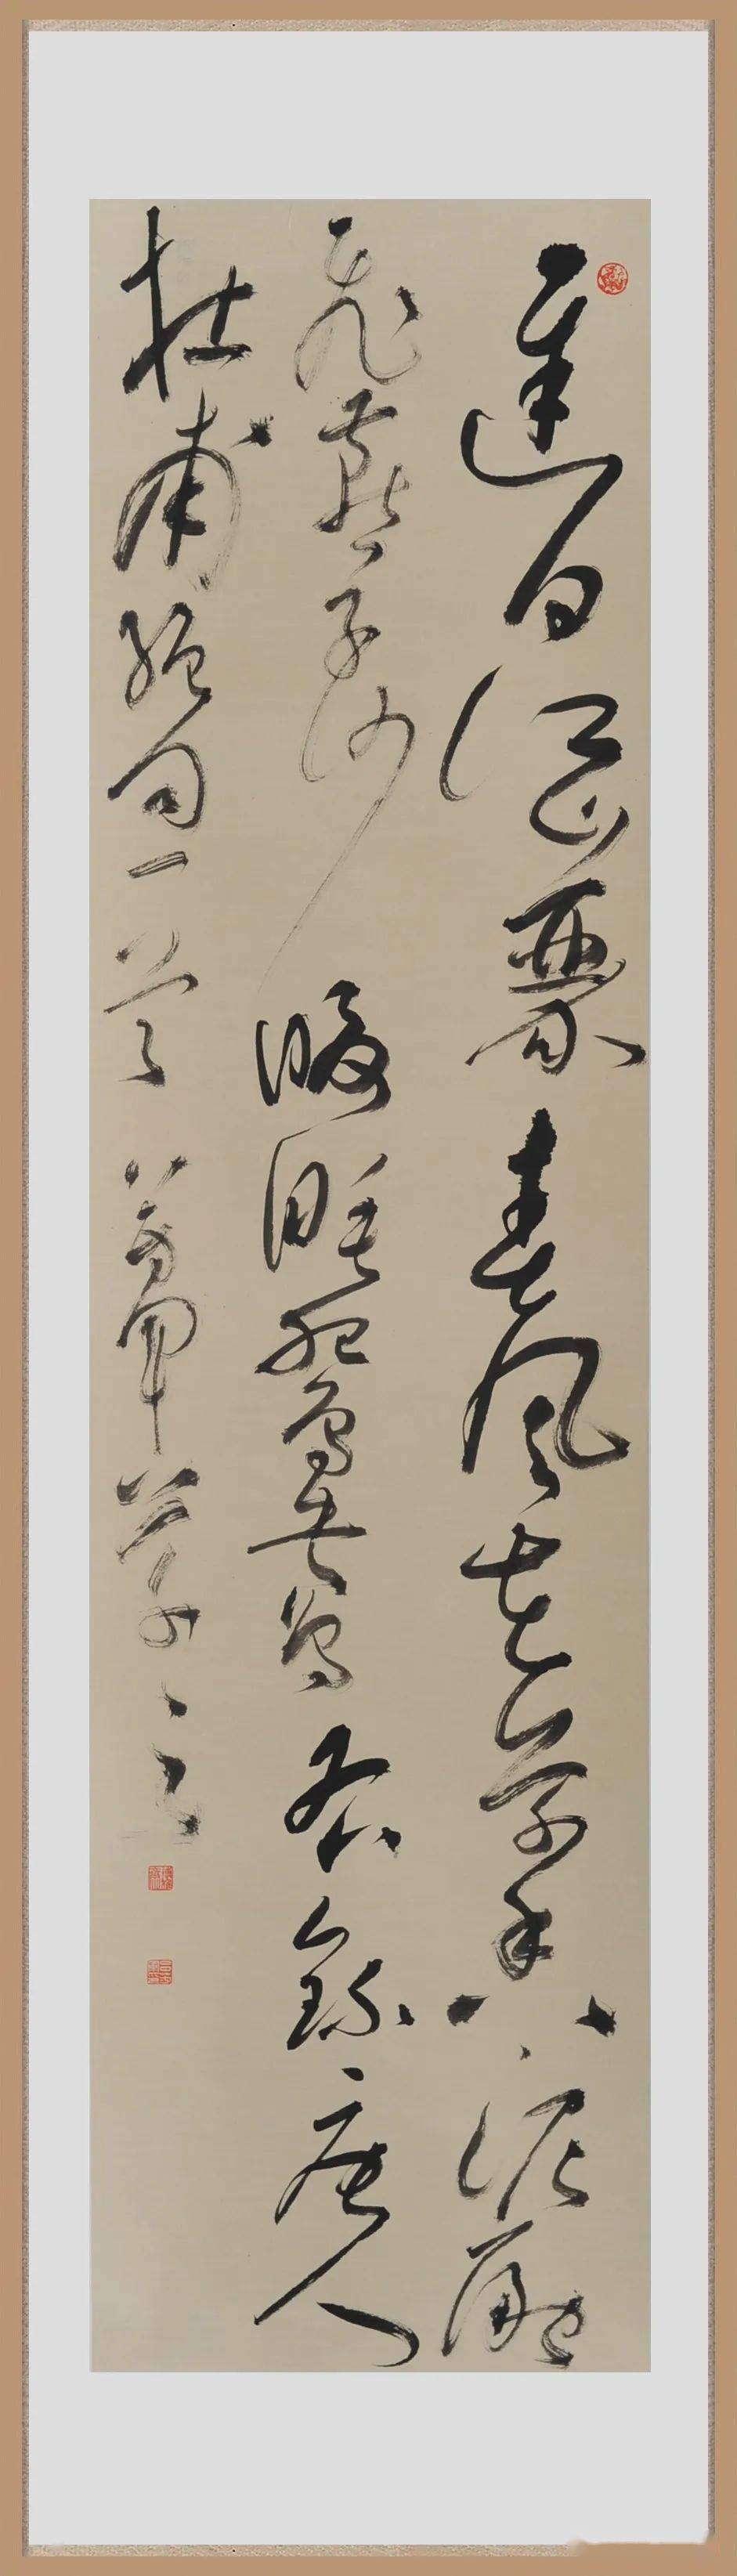 遲日江山麗春風花草香泥融
飛燕子沙暖睡鴛鴦右錄唐人
杜甫絕句一首